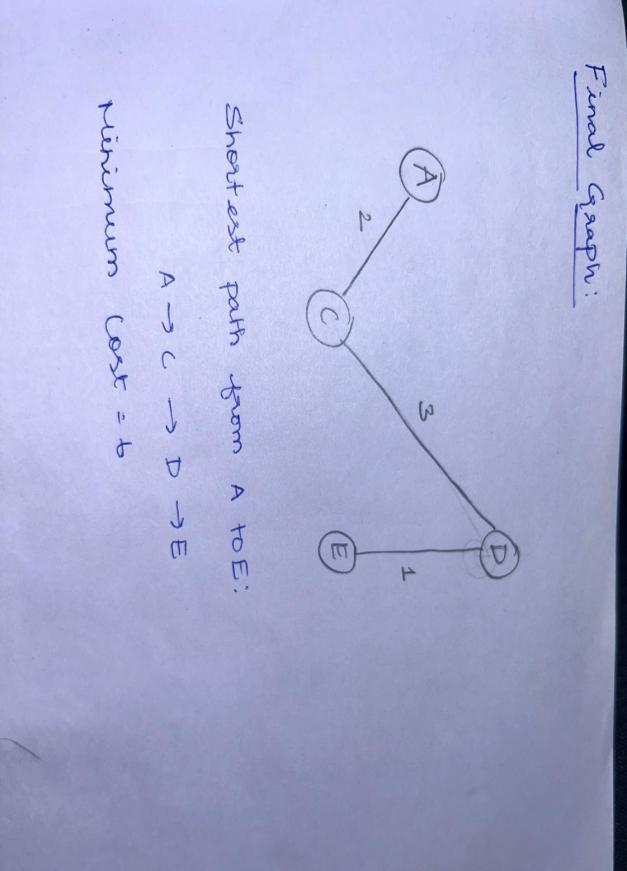 Final Graph:
A
2
C
3
D
1
E
Shortest path from A to E:
A → C → D → E
Minimum Cost = 6